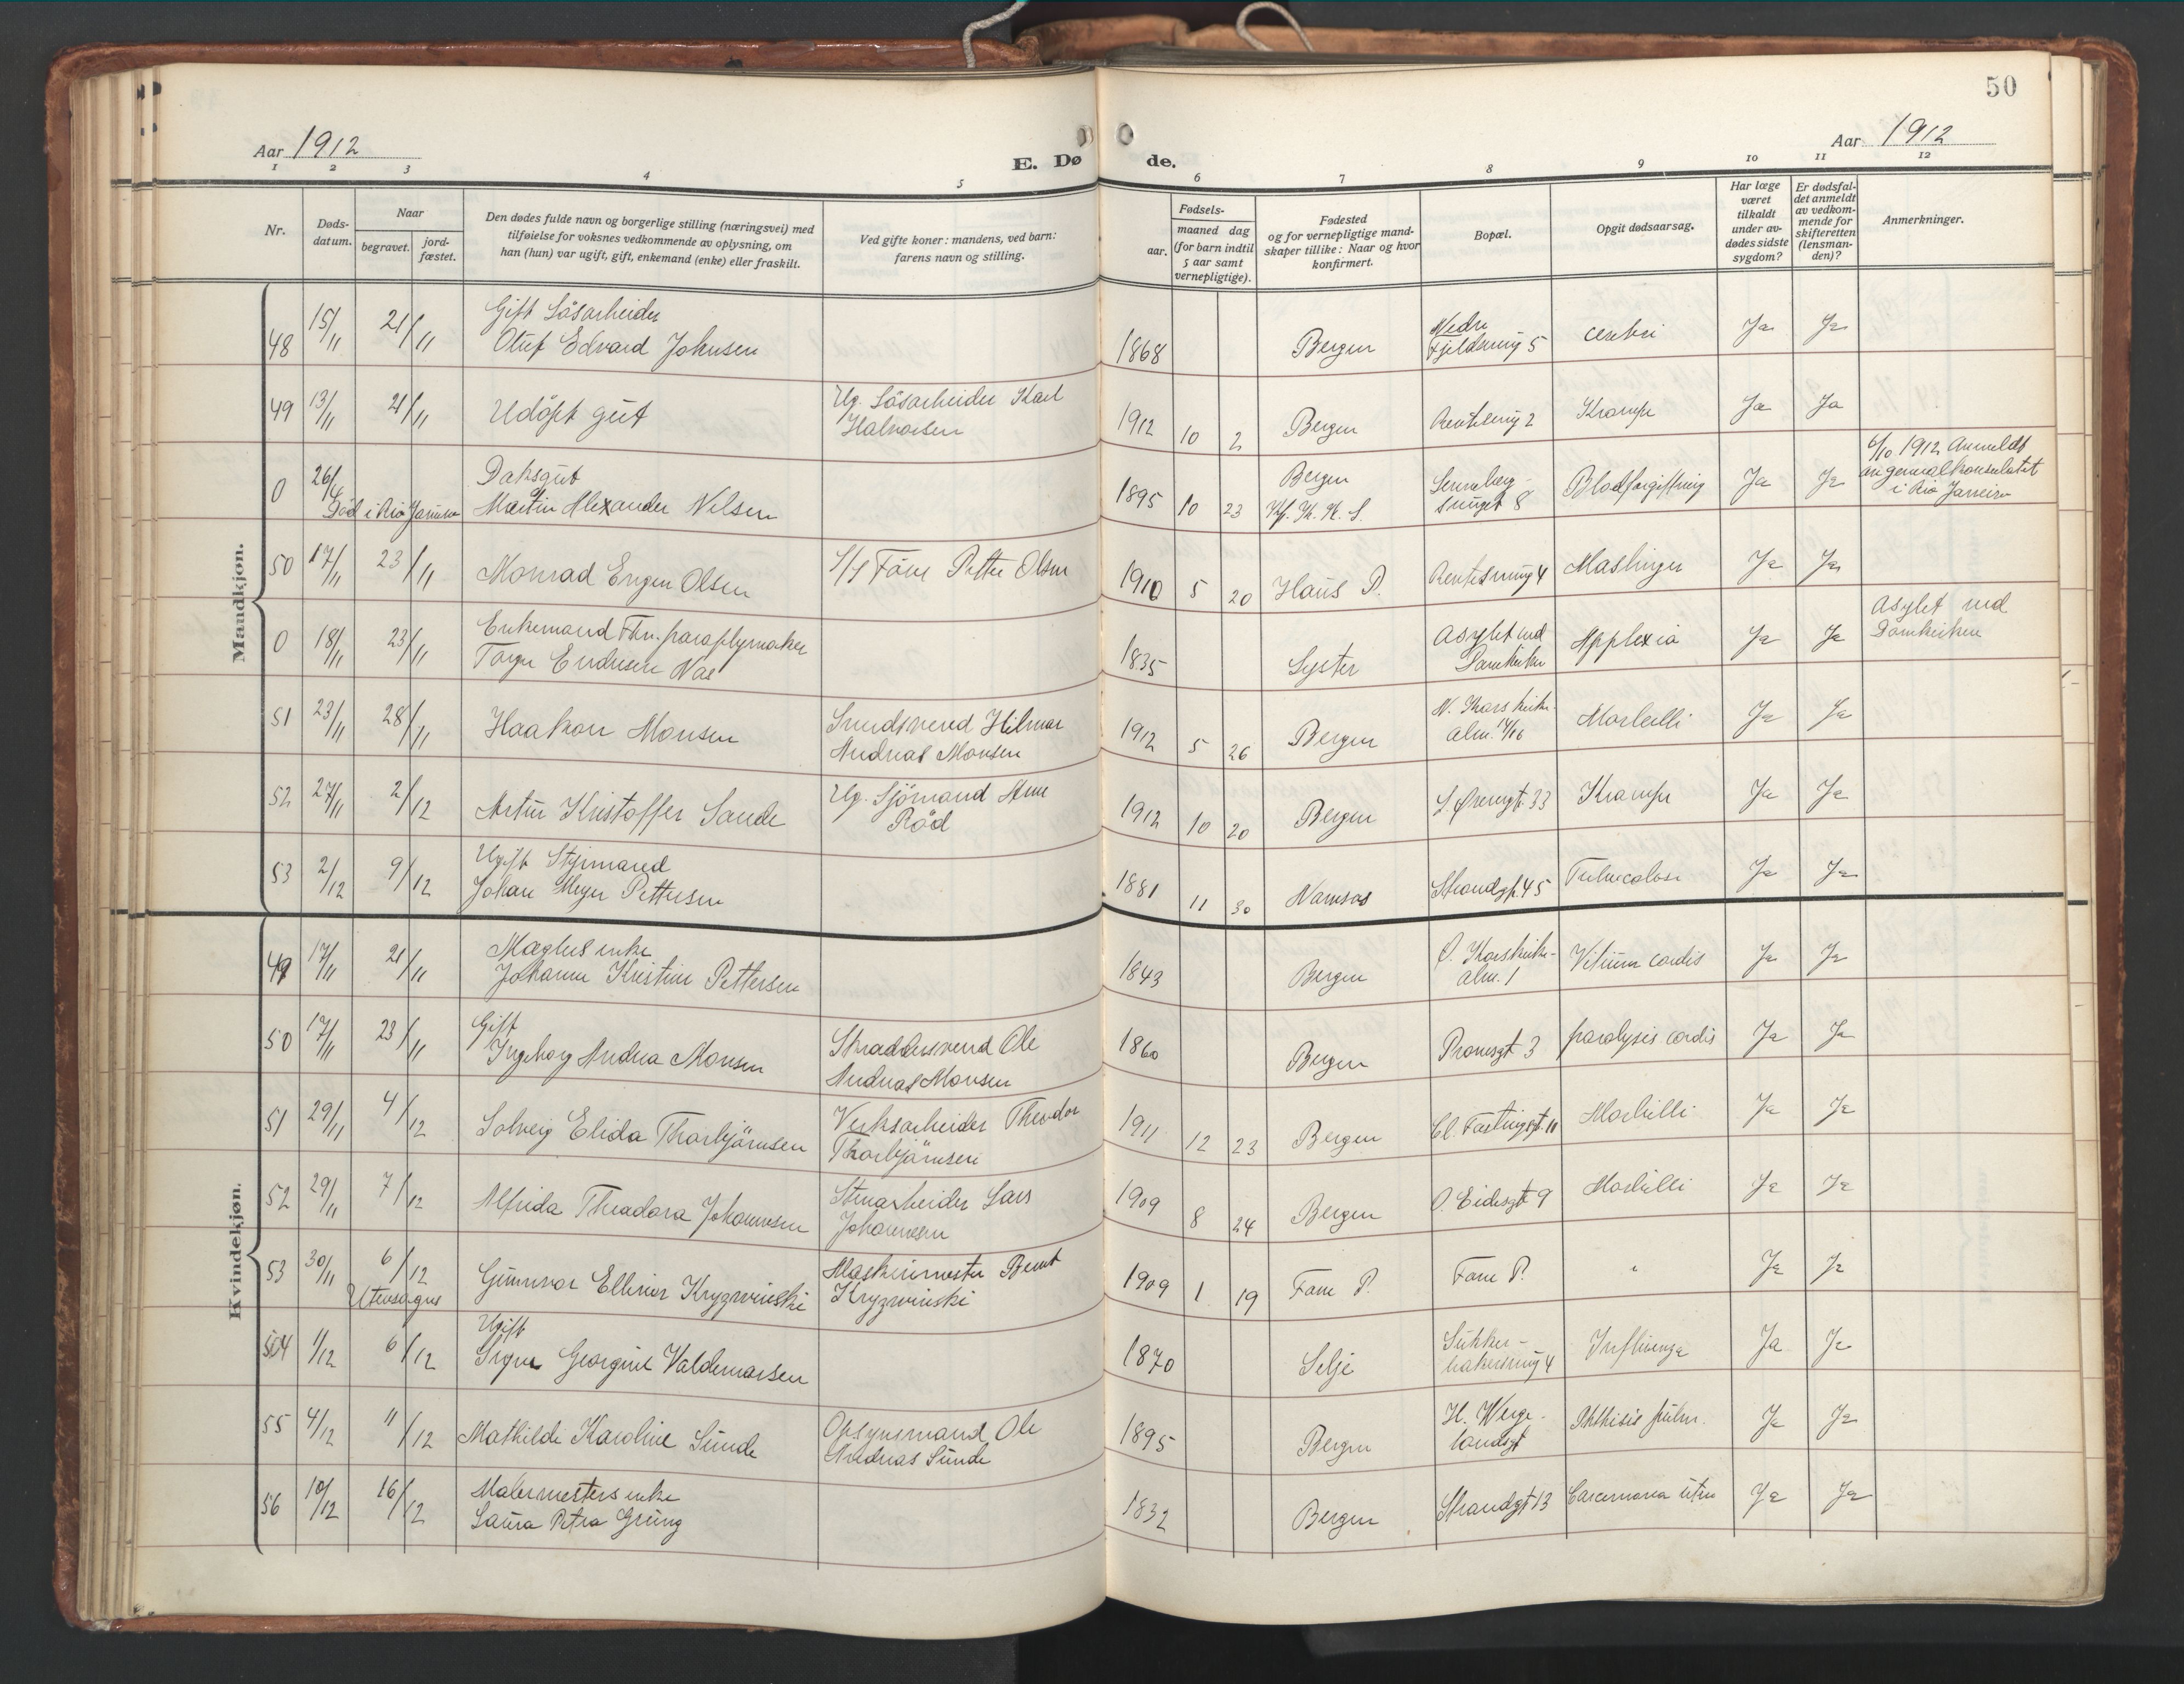 50
Aar 1912
E. Dø
de.
Aar 1912
1 2 3 4 5 6 7 8 9 10 11 12
Nr.
Døds-
datum.
Naar
begravet.
jord-
fæstet.
Den dødes fulde navn og borgerlige stilling (næringsvei) med
tilføielse for voksnes vedkommende av oplysning, om
han (hun) var ugift, gift, enkemand (enke) eller fraskilt.
Ved gifte koner: mandens, ved barn:
farens navn og stilling.
Fødsels-
aar.
maaned dag
(for barn indtil
5 aar samt
vernepligtige).
Fødested
og for vernepligtige mand-
skaper tillike: Naar og hvor
konfirmert.
Bopæl.
Opgit dødsaarsag.
Har læge
været
tilkaldt
under av-
dødes sidste
sygdom?
Er dødsfal-
det anmeldt
av vedkom-
mende for
skifteretten
(lensman-
den)?
Anmerkninger.
Mandkjøn.
48 15/11 21/11 Gift Løsarbeider
Oluf Edvard Johnsen 1868 Bergen Nedre
Fjeldsmug 5 Ja Ja
49 13/11 21/11 Udöpt gut Ug. Løsarbeider Karl
Halvorsen 1912 10 2 Bergen 2 Krampe Ja Ja
0 26/ Död i Rio Janeiro Dæksgut
Martin Alexander Nilsen 1895 10 23 Bergen
8 Blodforgiftning Ja Ja 6/10 1912 Anmeldt
av generalkonsulatet
i Rio Janeiro
50 17/11 23/11 Monrad Engen Olsen Petter Olsen 1910 5 20 Haus P. 4 Ja Ja
0 18/11 23/11 Enkemand Fhv. paraplymaker
Torger Endresen Næs 1835 Lyster Asylet ved
Domkirken Applexia Ja Ja Asylet ved
Domkirken
51 23/11 28/11 Haakon Monsen Smedsvend Hilmar
Andreas Monsen 1912 5 26 Bergen N. Korskirke-
alm. 14/16 Morbilli Ja Ja
52 27/11 2/12 Artur Kristoffer Sande Ug. Sjömand Arne
Röd 1912 10 20 Bergen 33 Krampe Ja Ja
53 2/12 9/12 Ugift Styrmand
Johan Meyer Pettersen 1881 11 30 Namsos Strandgt. 45 Tuberculose Ja Ja
Kvindekjøn.
49 17/11 21/11 Mæglers enke
Johanne Kristine Pettersen 1843 Bergen Ø. Korskirke-
alm. 1 Vitium cordis Ja Ja
50 17/11 23/11 Gift
Ingeborg Andrea Monsen Skræddersvend Ole
Andreas Monsen 1860 Bergen 3 paralysis cordis Ja Ja
51 29/11 4/12 Solveig Elida Thorbjörnsen Verksarbeider Theodor
Thorbjörnsen 1911 12 23 Bergen Cl. Fastingsgt. 11 Morbilli Ja Ja
52 29/11 7/12 Alfrida Theodora Johannesen Stenarbeider Lars
Johannesen 1909 8 24 Bergen O. Eidesgt 9 Morbilli Ja Ja
53 30/11 6/12 Utensogns Gunnvor Ellinor Kryzwinski Maskinmester Bernt
Kryzwinski 1909 1 19 Fane P. Fane P. " Ja Ja
54 1/12 6/12 Ugift
Signe Georgine Valdemarsen 1870 Selje Sukker-
hussmug 4 Influenza Ja Ja
55 4/12 11/12 Mathilde Karoline Sunde Opsynsmand Ole
Andreas Sunde 1895 Bergen H. Werge-
landsgt Phthisis pulm. Ja Ja
56 10/12 16/12 Malermesters enke
Laura Petra Grung 1832 Bergen Strandgt 13 Carcinoma uteri Ja Ja